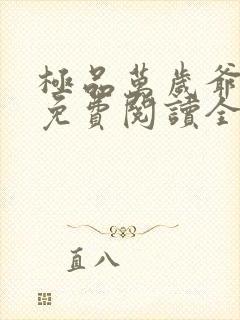 極品萬歲爺
免費閱讀全
直八